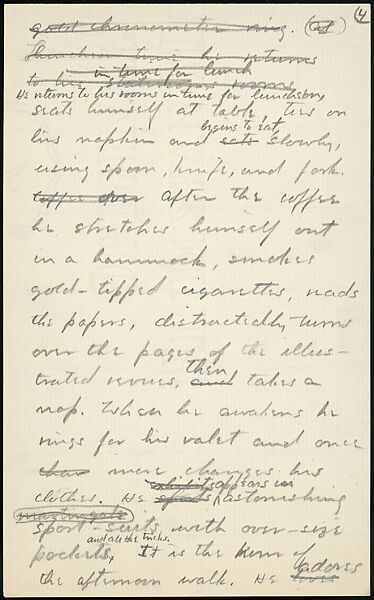 4
gold chronometer ring. (at
Luncheon time he returns
in time for lunch
to his staterooms rooms
He returns to his rooms in time for luncheon,
seats himself at table, ties on
begins to eat,
his napkin and eats slowly,
using spoon, knife, and fork.
coffee over after the coffee
he stretches himself out
in a hammock, smokes
gold-tipped cigarettes, reads
the papers, distractedly turns
over the pages of the illus-
then
trated revues, and takes a
nap. When he awakens he
rings for his valet and once
more changes his
exhibits appears in
clothes. He sports astonishing
martingale
sport-suits with over-size
and all the tricks.
pockets, It is the hour of
adores
the afternoon walk. He loves